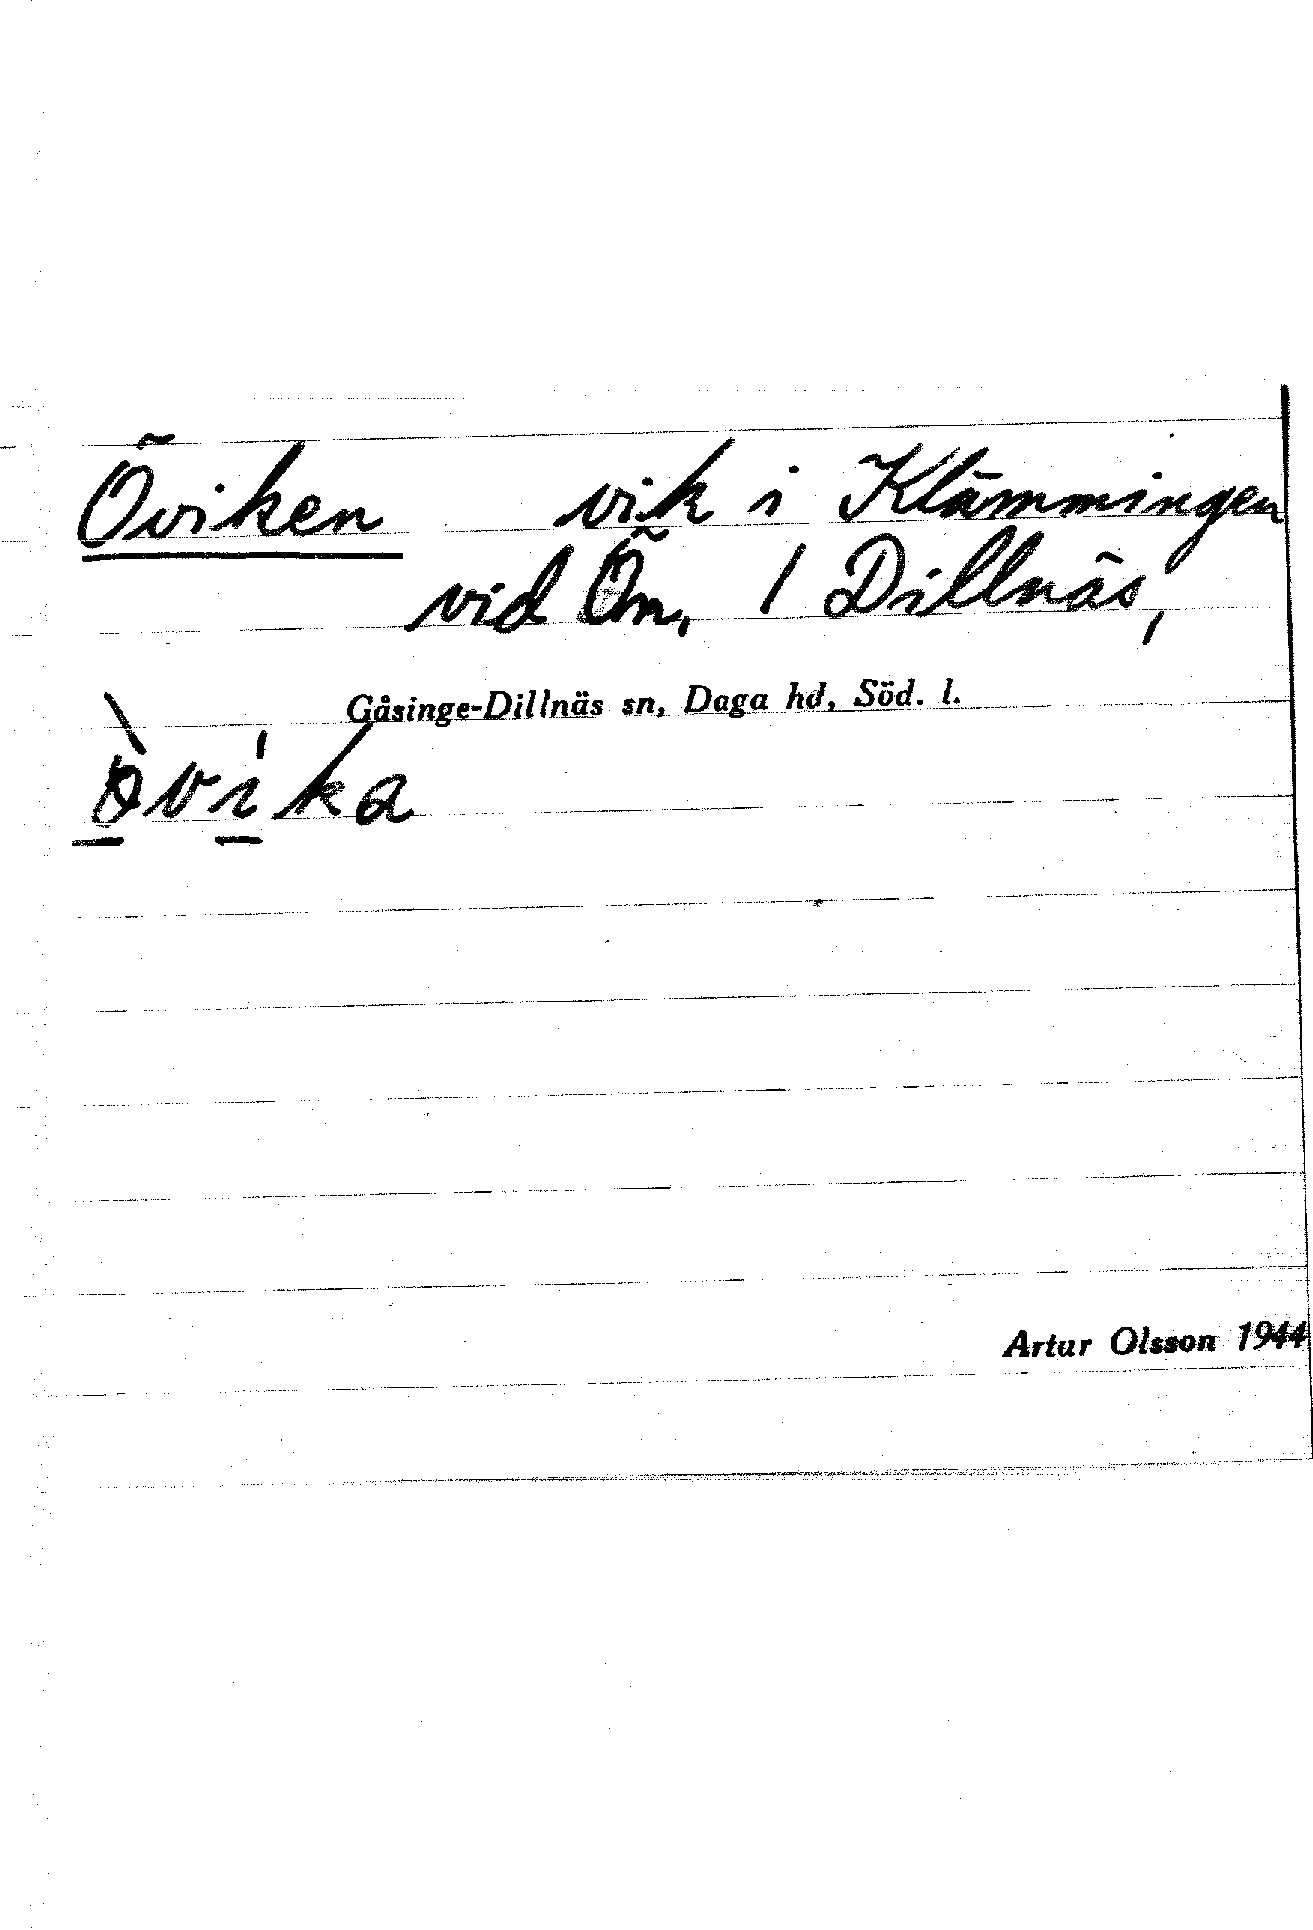 Öviken vik i Klämmingen
vid Ön, 1 Dillnäs,
Gåsinge-Dillnäs sn, Daga hd, Söd. l.
ö̀vi̍ka
Artur Olsson 1944